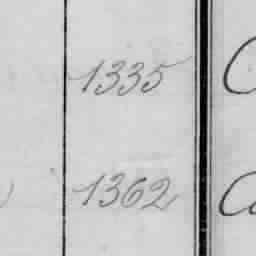 1335
1362